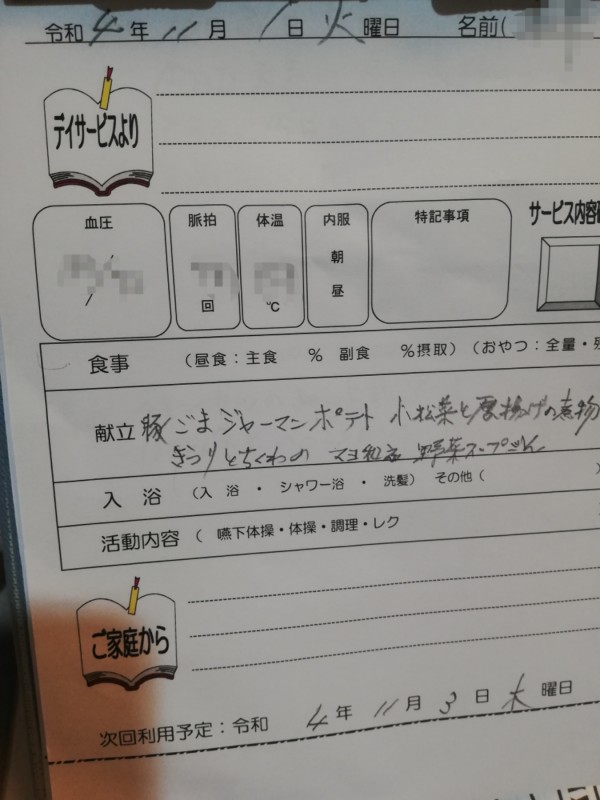 令和 4 年 11 月 1 日 火 曜日 名前(
デイサービスより
血圧 脈拍 体温 内服 特記事項 サービス内容
朝
昼
回 ℃
食事 (昼食:主食 % 副食 %摂取) (おやつ:全量・
献立 豚ごまジャーマンポテト 小松菜と厚揚げの煮物
きうりとちくわの マヨ和え 野菜スープ
入浴 (入 浴 ・ シャワー浴 ・ 洗髪) その他 (
活動内容 ( 嚥下体操・体操・調理・レク
ご家庭から
次回利用予定:令和 4 年 11 月 3 日 木 曜日